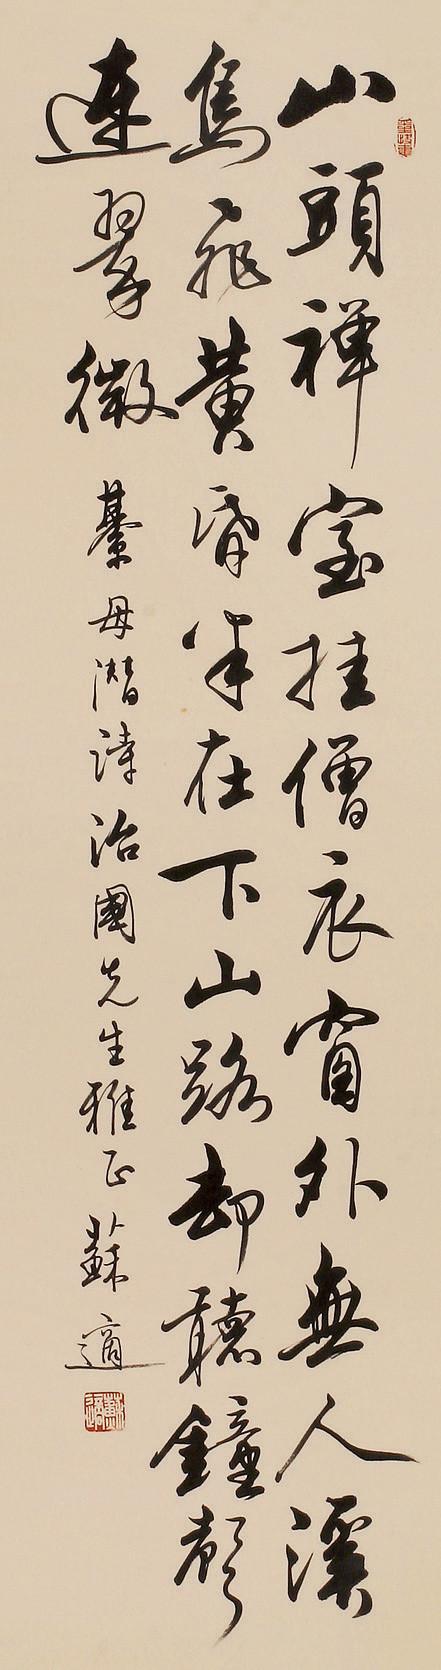 山頭禪室挂僧衣窗外無人溪
鳥飛黃昏半在下山路却聽鐘聲
連翠微
綦毋潛詩治國先生雅正蘇適
蘇適